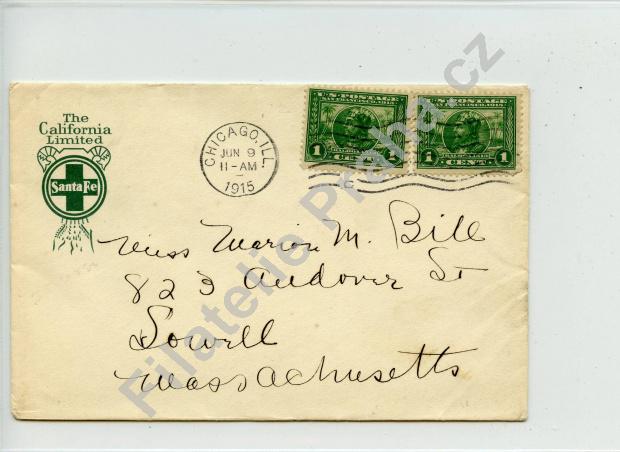 The
California
Limited
Santa Fe
CHICAGO, ILL.
JUN 9
11-AM
1915
U.S. POSTAGE
SAN FRANCISCO 1915
1 CENT 1
U.S. POSTAGE
SAN FRANCISCO 1915
1 CENT 1
Miss Marion M. Bill
823 Andover St
Lowell
Massachusetts
Filatelie Praha.cz